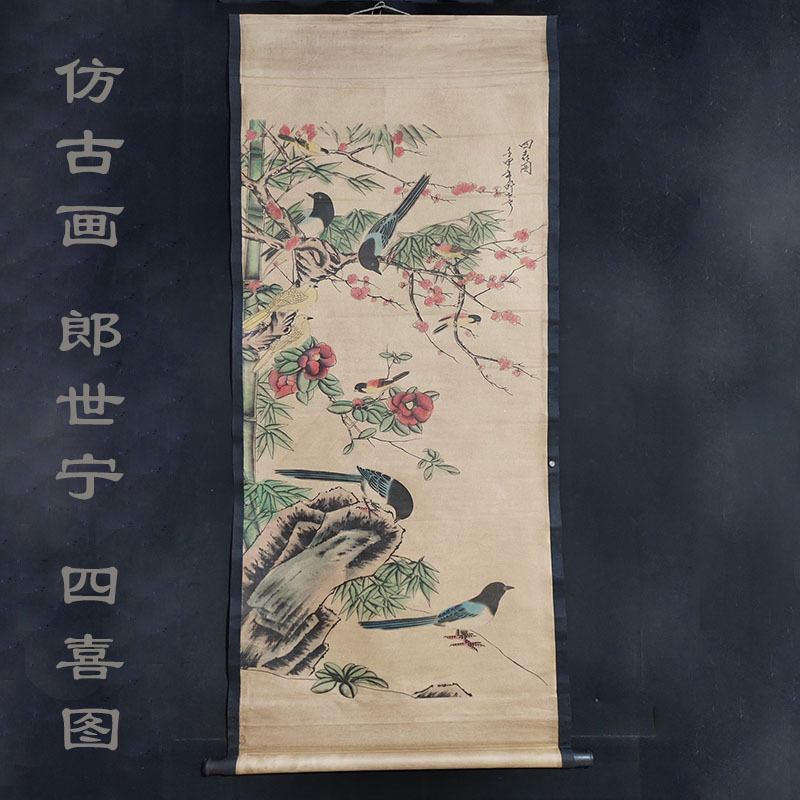 仿古画 郎世宁 四喜图
四喜图